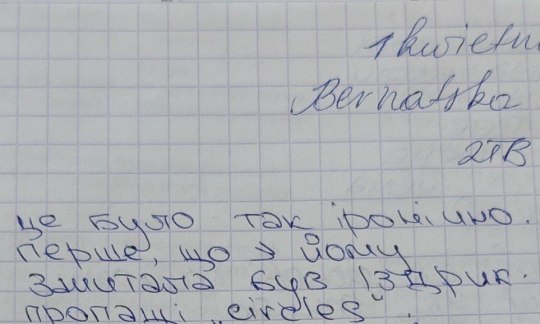 1 kwietn
Bernatska
2TB
це було так іронічно.
перше, що я йому
зчитала був Іздрик.
пропащі „circles".